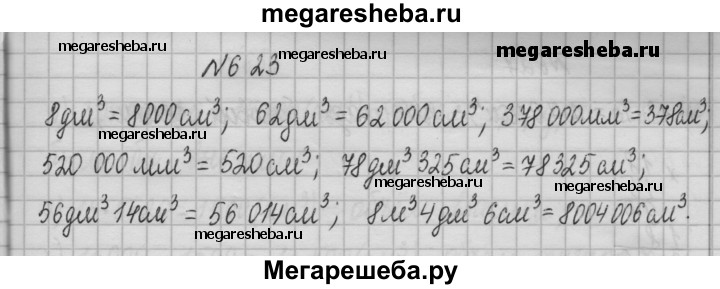 megaresheba.ru
megaresheba.ru megaresheba.ru megaresheba.ru
№623
8дм³ = 8000см³; 62дм³ = 62 000см³; 378 000мм³ = 378см³;
megaresheba.ru
520 000 мм³ = 520см³; 78дм³ 325см³ = 78325см³;
megaresheba.ru
56дм³ 14см³ = 56 014см³; 8м³ 4дм³ 6см³ = 8004006см³.
megaresheba.ru
Мегарешеба.ру